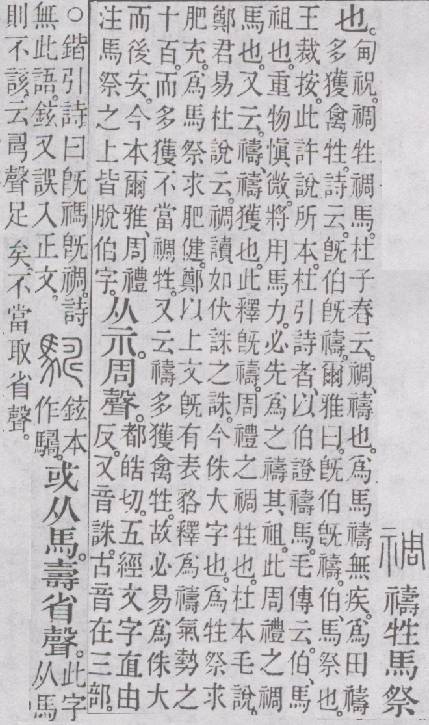 禂 禱牲馬祭
也。甸祝。禂牲禂馬。杜子春云。禂、禱也。爲馬禱無疾。爲田禱
多獲禽牲。詩云。旣伯旣禱。爾雅曰。旣伯旣禱。伯、馬祭也。
王裁按。此許說所本。杜引詩者、以伯證禱馬。毛傳云。伯、馬
祖也。重物愼微。將用馬力。必先爲之禱其祖。此周禮之禂
馬也。又云。禱、禱獲也。此釋旣禱。周禮之禂牲也。杜本毛說。
鄭君易杜說云。禂讀如伏誅之誅。今侏大字也。爲牲祭求
肥充。爲馬祭求肥健。鄭以上文旣有表貉釋爲禱氣勢之
十百而多獲。不當禂牲。又云禱多獲禽牲。故必易爲侏大
而後安。今本爾雅、周禮
注馬祭之上皆脫伯字。从示。周聲。都皓切。五經文字直由
反。又音誅。古音在三部。
○鍇引詩曰旣禡旣禂。詩
無此語。鉉又誤入正文。鉉本
作騳。或从馬。壽省聲。此字
从馬
則不該云𠷎聲足矣。不當取省聲。